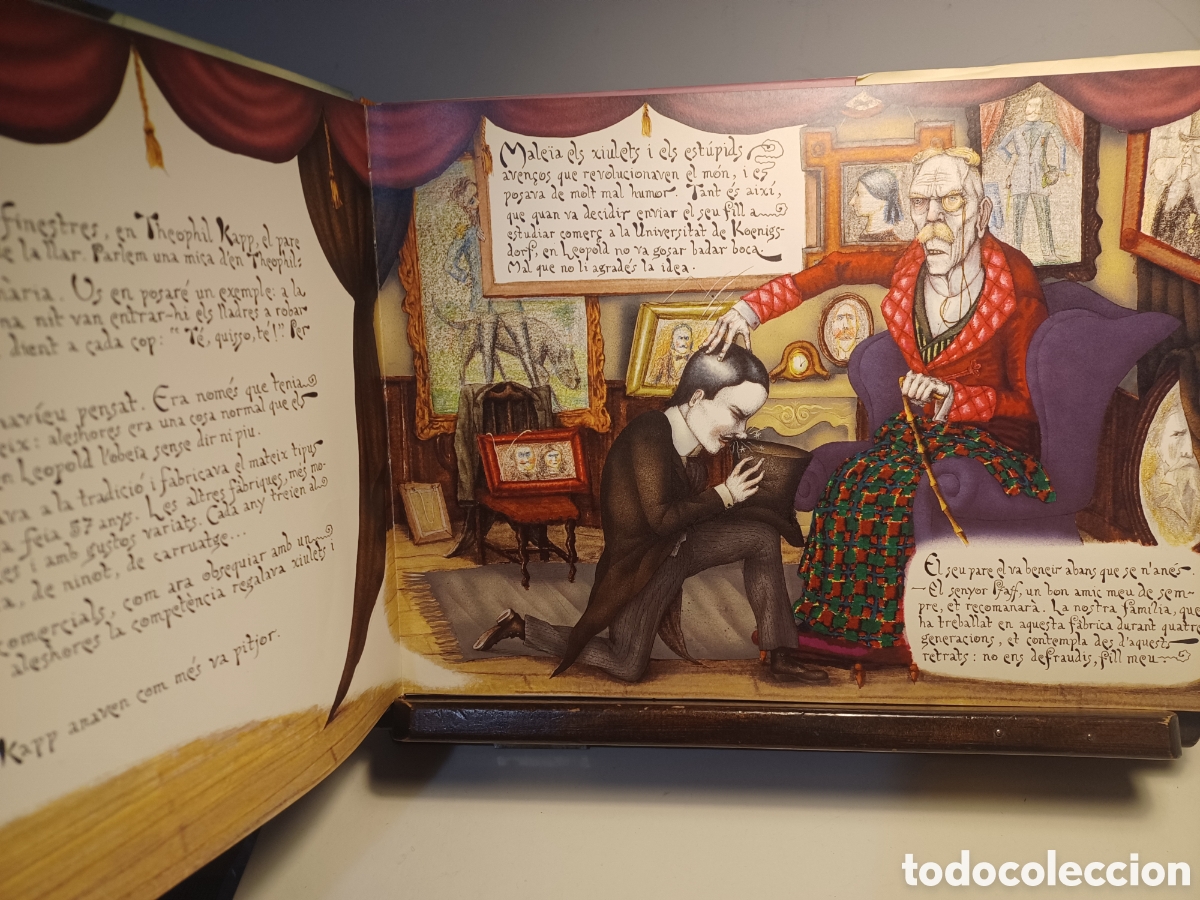 finestres, en Theophil Kapp, el pare
de la llar. Parlem una mica d'en Theophil:
Us en posaré un exemple: a la
nit van entrar-hi els lladres a robar
dient a cada cop: "Té, quisso, té!". Per
pensat. Era només que tenia
aleshores era una cosa normal que els
en Leopold l'obeïa sense dir ni piu.
a la tradició i fabricava el mateix tipus
feia 37 anys. Les altres fàbriques, més mo-
i amb gustos variats. Cada any treien al
de ninot, de carruatge...
comercials, com ara obsequiar amb un
aleshores la competència regalava xiulets i
Kapp anaven com més va pitjor.
Maleïa els xiulets i els estúpids
avenços que revolucionaven el món, i es
posava de molt mal humor. Tant és així,
que quan va decidir enviar el seu fill a
estudiar comerç a la Universitat de Koenigs-
dorf, en Leopold no va gosar badar boca.
Mal que no li agradés la idea.
El seu pare el va beneir abans que se n'anés.
— El senyor Pfaff, un bon amic meu de sem-
pre, et recomanarà. La nostra família, que
ha treballat en aquesta fàbrica durant quatre
generacions, et contempla des d'aquest
retrats: no ens defraudis, fill meu
todocoleccion